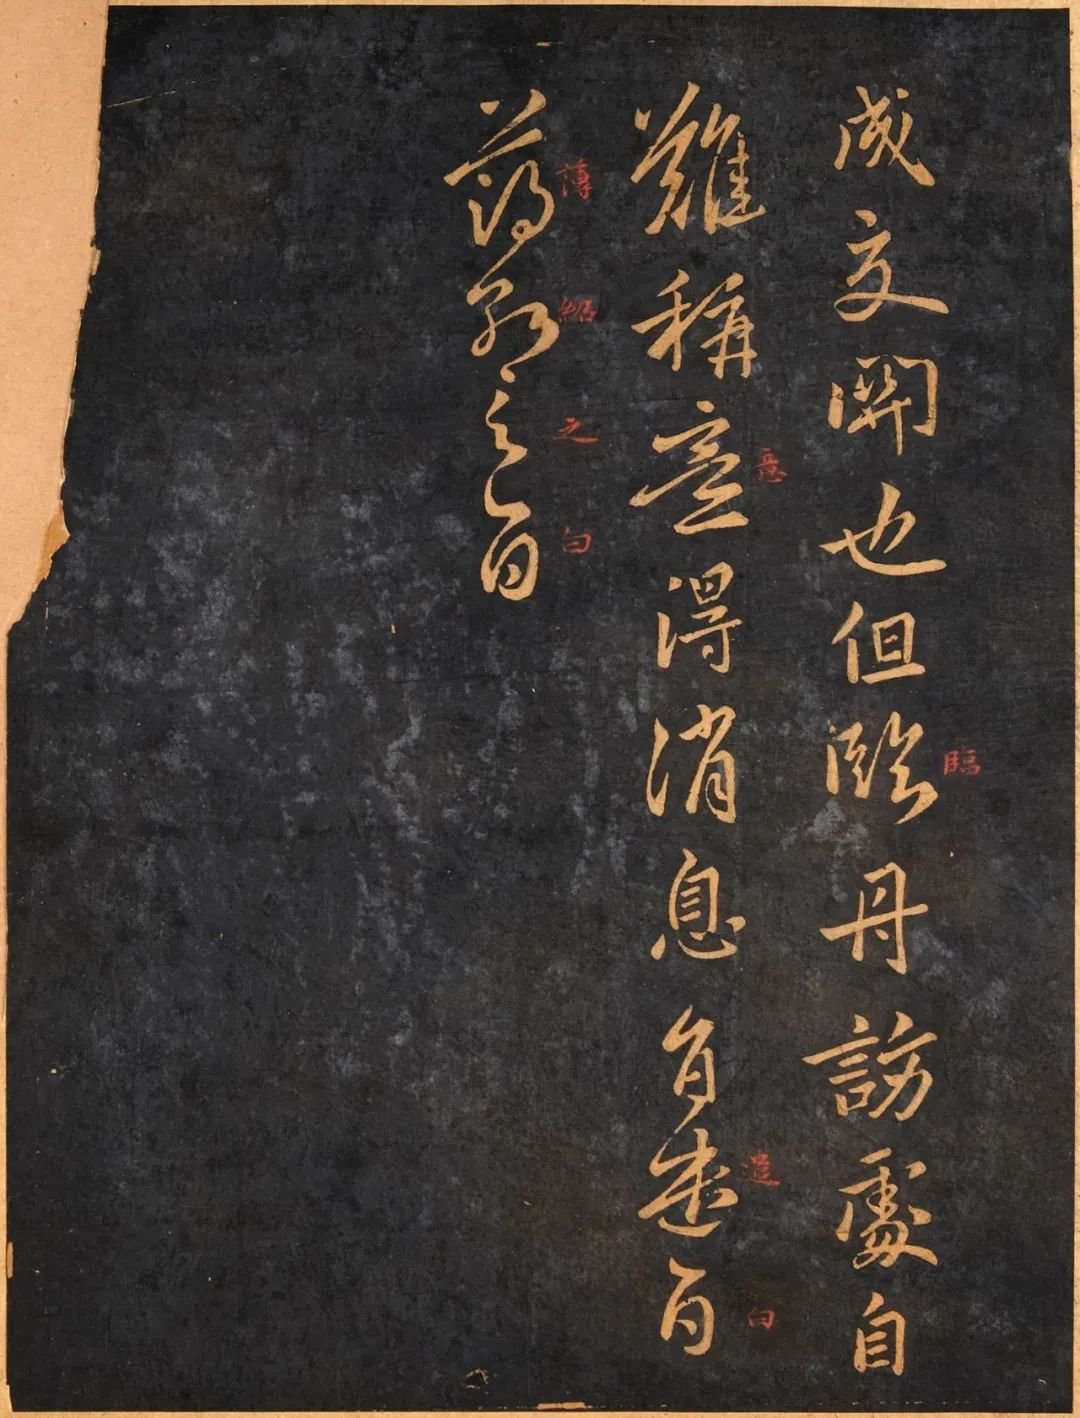 成文開也但臨丹訪處自
臨
難稱意得消息自遣白
意
遣
白
薄紹之白
薄紹之白